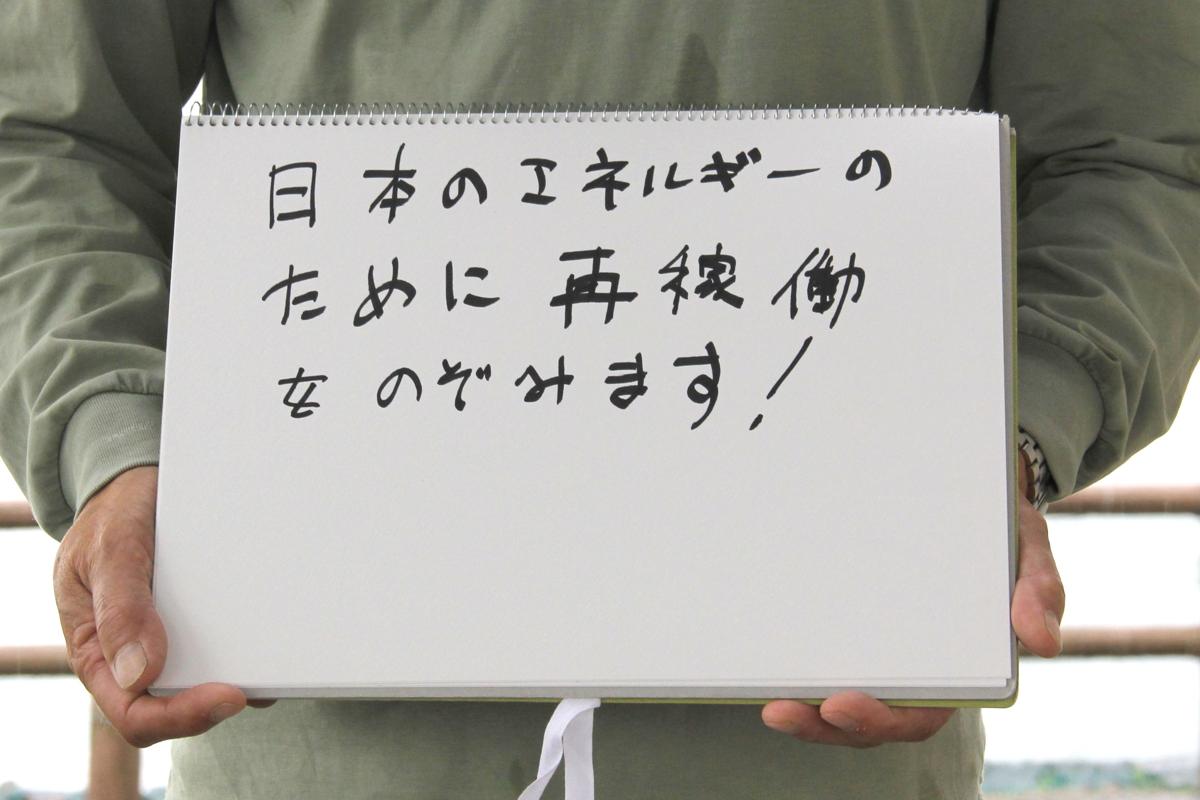 日本のエネルギーの
ために再稼働
をのぞみます!